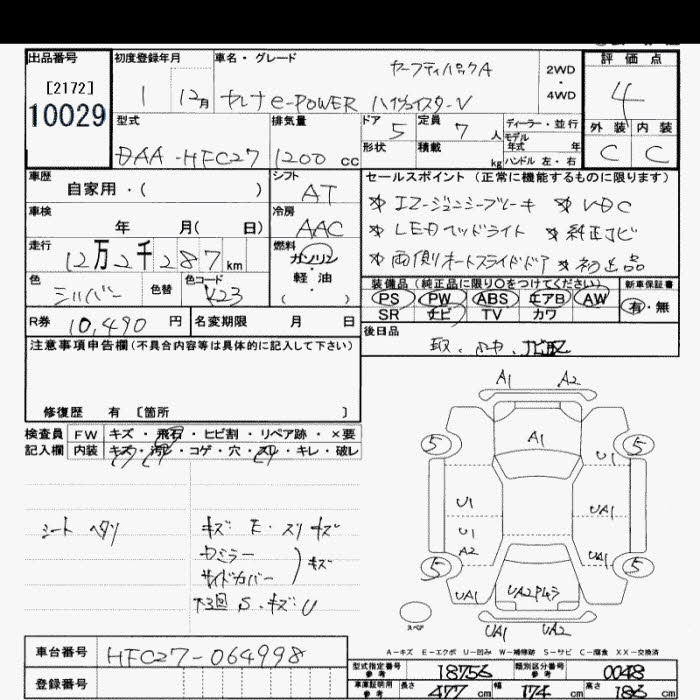 出品番号 初度登録年月 車名・グレード 評価点
[2172]
10029
1 12月 セレナ e-POWER ハイウェイスターV
セーフティパックA 2WD・4WD
4
型式 排気量 ドア 定員 ディーラー・並行
DAA-HFC27 1200 cc 5 7 人
モデル 年式 年
形状 積載 kg ハンドル 左・右
外装 内装
C C
車歴 自家用・( ) シフト AT
セールスポイント(正常に機能するものに限ります)
車検 年 月( 日) 冷房 AAC
※ エマージェンシーブレーキ ※ VDC
※ LEDヘッドライト ※ 純正ナビ
※ 両側オートスライドドア
走行 12万2千287km 燃料 ガソリン 軽・油 ( )
色 シルバー 色替 色コード K23
装備品(純正品に限り○をつけてください) 新車保証書
PS PW ABS エアB AW 有・無
SR ナビ TV カワ
R券 10,490 円 名変期限 月 日
後日品
注意事項申告欄(不具合内容等は具体的に記入して下さい)
修復歴 有 〔箇所 〕
検査員 FW キズ・飛石・ヒビ割・リペア跡・×要
記入欄 内装 キズ・汚レ・コゲ・穴・スレ・キレ・破レ
シート ヘタリ
キズ: E・スリキズ
Dミラー
サイドカバー
キズ
下3回 S・キズ:U
A1 A2
A1
5 5
U1
U1 UA1
U1
A2 UA1
5 5
UA1
UA1 UA2
スペア
A-キズ E-エクボ U-凹み W-補修跡 S-サビ C-腐食 XX-交換済
車台番号 HFC27-064998
登録番号
型式指定番号 参考 18756 類別区分番号 参考 0048
車庫証明用 参考 長さ 477 cm 幅 174 cm 高さ 186 cm